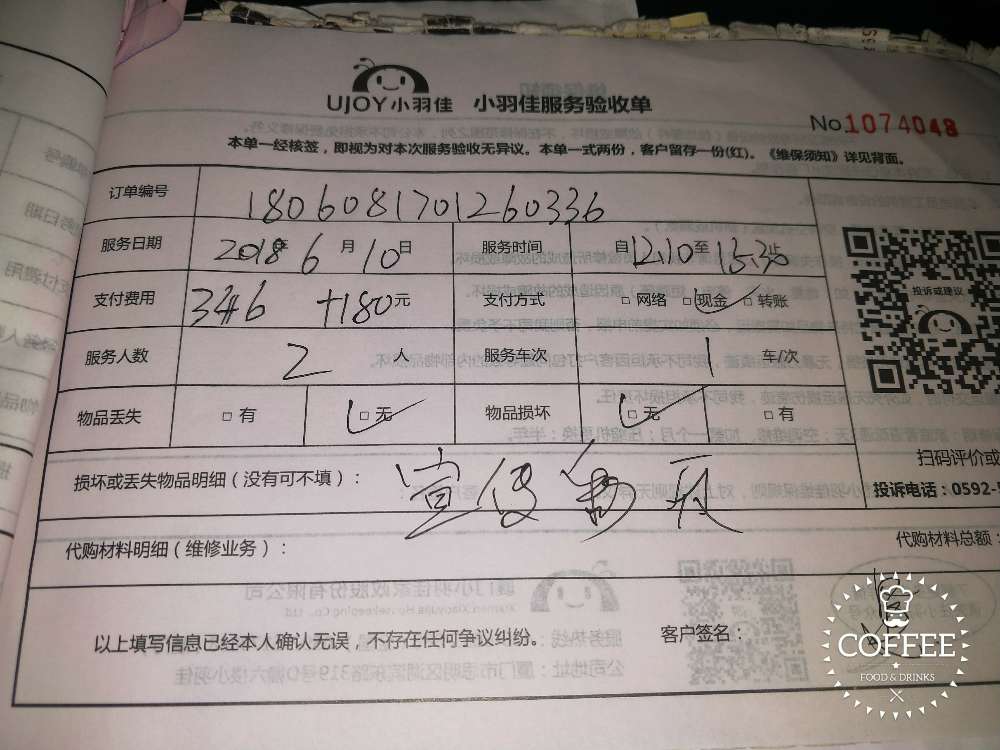 UJOY小羽佳 小羽佳服务验收单
No 1074048
本单一经核签，即视为对本次服务验收无异议。本单一式两份，客户留存一份(红)。《维保须知》详见背面。
订单编号 1806081701260336
服务日期 2018年 6 月 10 日 服务时间 自 12.10 至 15.35 止
支付费用 346 +180 元 支付方式 □ 网络 □ 现金 □ 转账
投诉或建议
服务人数 2 人 服务车次 1 车/次
物品丢失 □ 有 □ 无 物品损坏 □ 无 □ 有
扫码评价或
损坏或丢失物品明细（没有可不填）：
投诉电话：0592-
代购材料明细（维修业务）： 代购材料总额：
以上填写信息已经本人确认无误，不存在任何争议纠纷。 客户签名：
COFFEE
FOOD & DRINKS